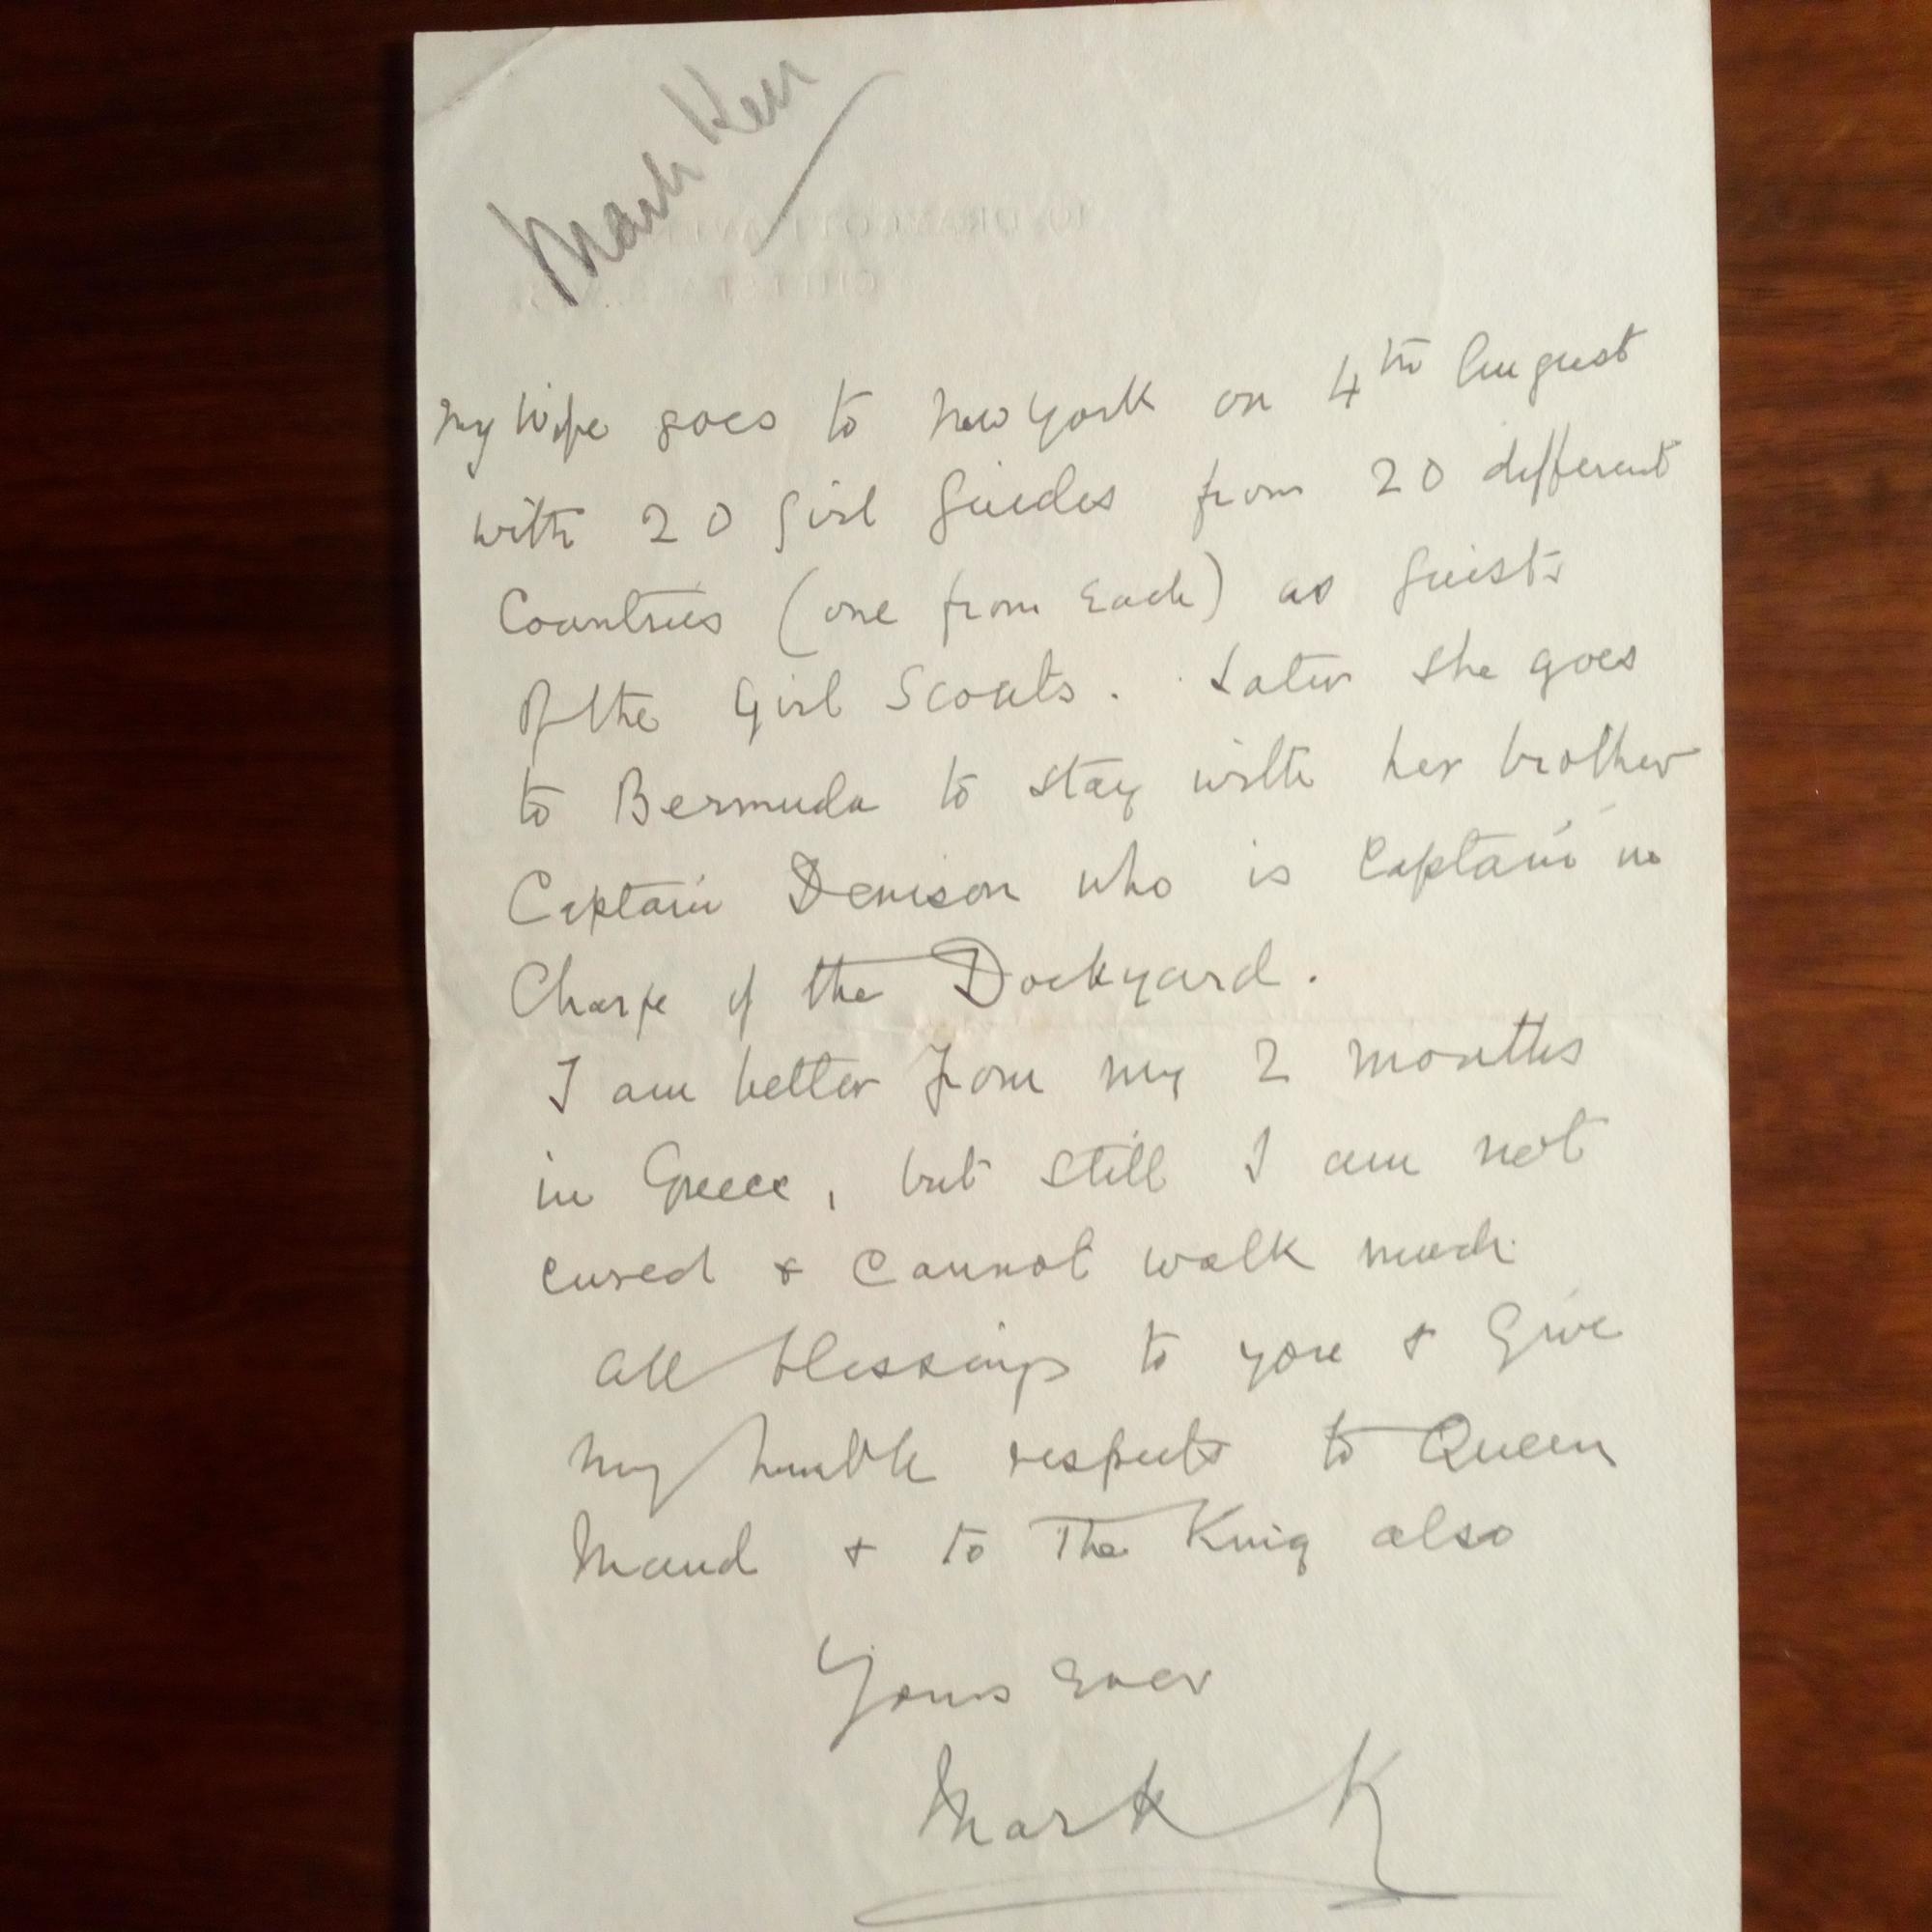 Mark Kerr
My Wife goes to New York on 4th August
with 20 Girl Guides from 20 different
Countries (one from Each) as guests
Of the Girl Scouts. Later She goes
to Bermuda to stay with her brother
Captain Denison who is Captain in
Charge of the Dockyard.
I am better from my 2 months
in Greece, but still I am not
cured & cannot walk much.
All blessings to you & Give
my humble respects to Queen
Maud & to The King also
Yours Ever
Mark K